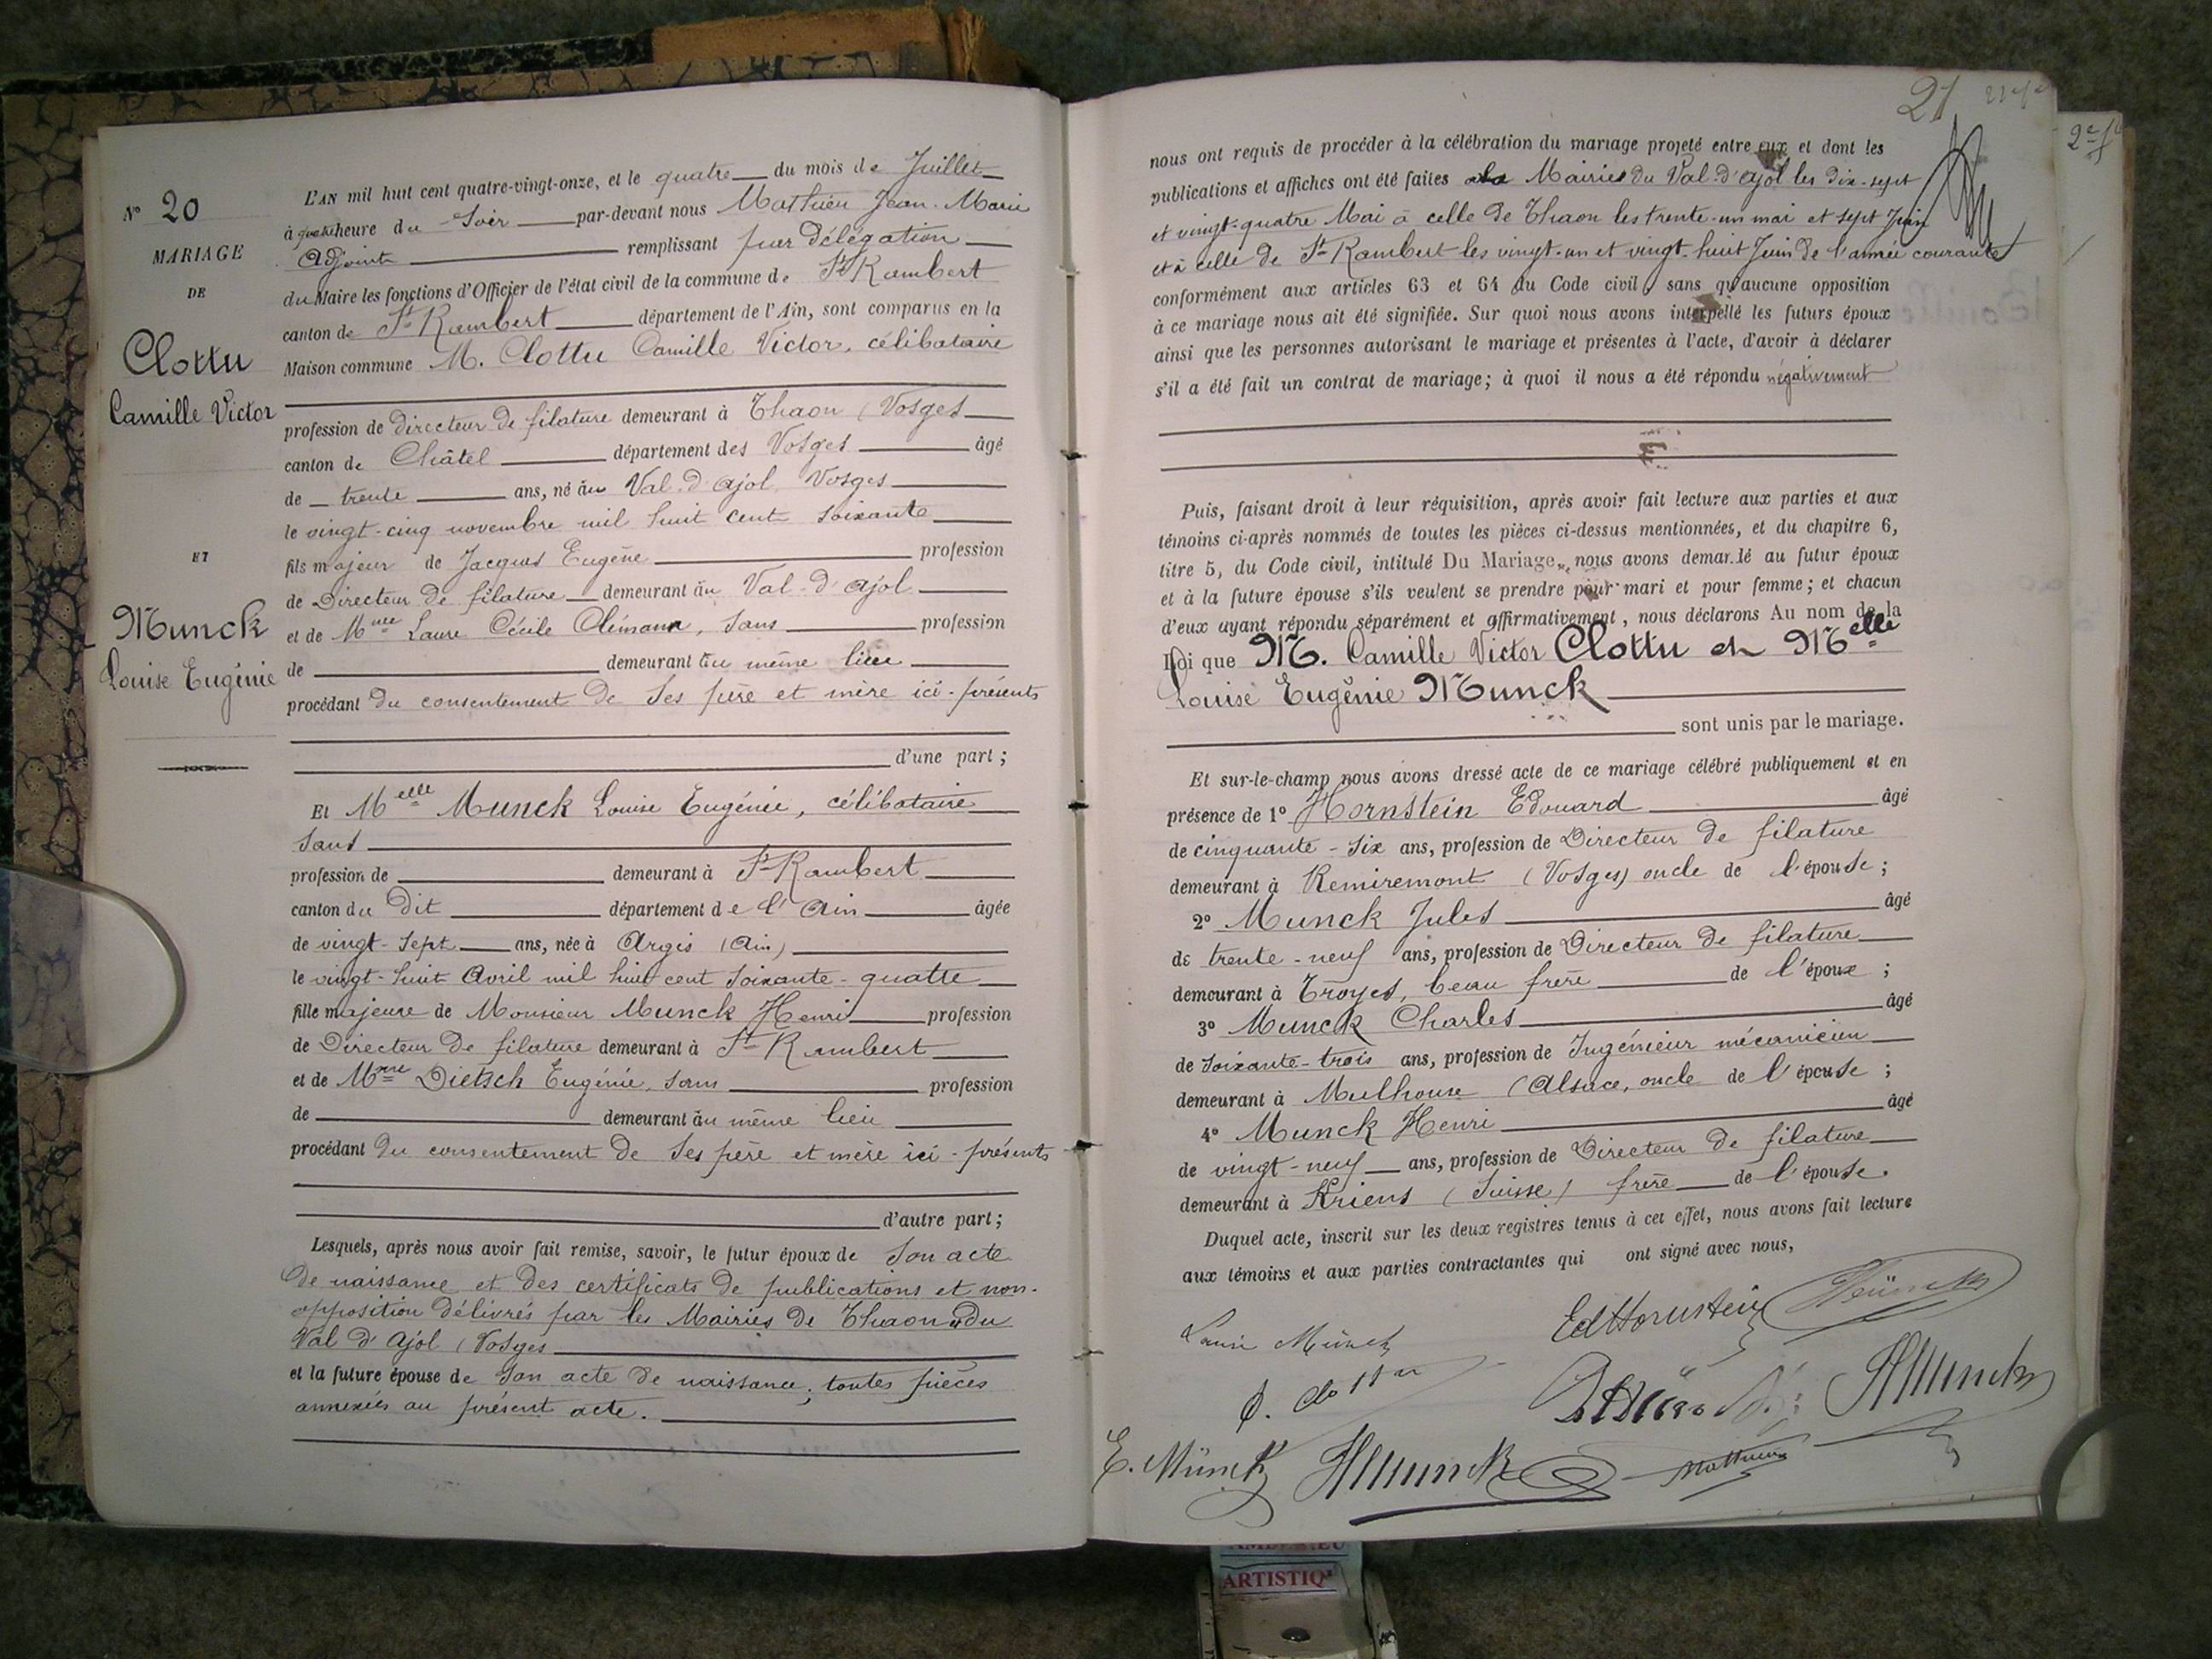 N° 20
MARIAGE
DE
Clottu
Camille Victor
ET
Munck
Louise Eugénie
L'AN mil huit cent quatre-vingt-onze, et le quatre du mois de Juillet
à quatre heure du Soir par-devant nous Mathieu Jean-Marie
Adjoint remplissant par délégation
du Maire les fonctions d'Officier de l'état civil de la commune de St Rambert
canton de St Rambert département de l'Ain, sont comparus en la
Maison commune M. Clottu Camille Victor, célibataire
profession de directeur de filature demeurant à Thaon (Vosges
canton de Châtel département des Vosges âgé
de trente ans, né au Val-d'ajol, Vosges
le vingt-cinq novembre mil huit cent soixante
fils majeur de Jacques Eugène profession
de Directeur de filature demeurant au Val-d'ajol
et de Mme Laure Cécile Clémann, sans profession
de demeurant au même lieu
procédant du consentement de ses père et mère ici-présents
d'une part ;
Et Melle Munck Louise Eugénie, célibataire
sans
profession de demeurant à St Rambert
canton du dit département de l'Ain âgée
de vingt-sept ans, née à Argis (Ain)
le vingt-huit Avril mil huit cent soixante-quatre
fille majeure de Monsieur Munck Henri profession
de Directeur de filature demeurant à St Rambert
et de Mme Dietsch Eugénie, sans profession
de demeurant au même lieu
procédant du consentement de ses père et mère ici-présents
d'autre part ;
Lesquels, après nous avoir fait remise, savoir, le futur époux de son acte
de naissance et des certificats de publications et non-
opposition délivrés par les Mairies de Thaon & du
Val d'Ajol (Vosges
et la future épouse de son acte de naissance ; toutes pièces
annexées au présent acte.
21
2e f
nous ont requis de procéder à la célébration du mariage projeté entre eux et dont les
publications et affiches ont été faites Mairies du Val-d'ajol les dix-sept
et vingt-quatre Mai à celle de Thaon les trente-un mai et sept Juin
et à celle de St Rambert les vingt-un et vingt-huit Juin de l'année courante
conformément aux articles 63 et 64 du Code civil, sans qu'aucune opposition
à ce mariage nous ait été signifiée. Sur quoi nous avons interpellé les futurs époux
ainsi que les personnes autorisant le mariage et présentes à l'acte, d'avoir à déclarer
s'il a été fait un contrat de mariage ; à quoi il nous a été répondu négativement
Puis, faisant droit à leur réquisition, après avoir fait lecture aux parties et aux
témoins ci-après nommés de toutes les pièces ci-dessus mentionnées, et du chapitre 6,
titre 5, du Code civil, intitulé Du Mariage, nous avons demandé au futur époux
et à la future épouse s'ils veulent se prendre pour mari et pour femme ; et chacun
d'eux ayant répondu séparément et affirmativement, nous déclarons Au nom de la
Loi que M. Camille Victor Clottu et Melle
Louise Eugénie Munck
sont unis par le mariage.
Et sur-le-champ nous avons dressé acte de ce mariage célébré publiquement et en
présence de 1° Hornstein Edouard âgé
de cinquante-six ans, profession de Directeur de filature
demeurant à Remiremont (Vosges) oncle de l'épouse ;
2° Munck Jules âgé
de trente-neuf ans, profession de Directeur de filature
demeurant à Troyes, beau frère de l'époux ;
3° Munck Charles âgé
de soixante-trois ans, profession de Ingénieur mécanicien
demeurant à Mulhouse (Alsace, oncle de l'épouse ;
4° Munck Henri âgé
de vingt-neuf ans, profession de Directeur de filature
demeurant à Kriens (Suisse) frère de l'épouse.
Duquel acte, inscrit sur les deux registres tenus à cet effet, nous avons fait lecture
aux témoins et aux parties contractantes qui ont signé avec nous,
Ed Hornstein
Munck
Louise Münck
E. Münck
HMunck
Mathieu
ARTISTIQ